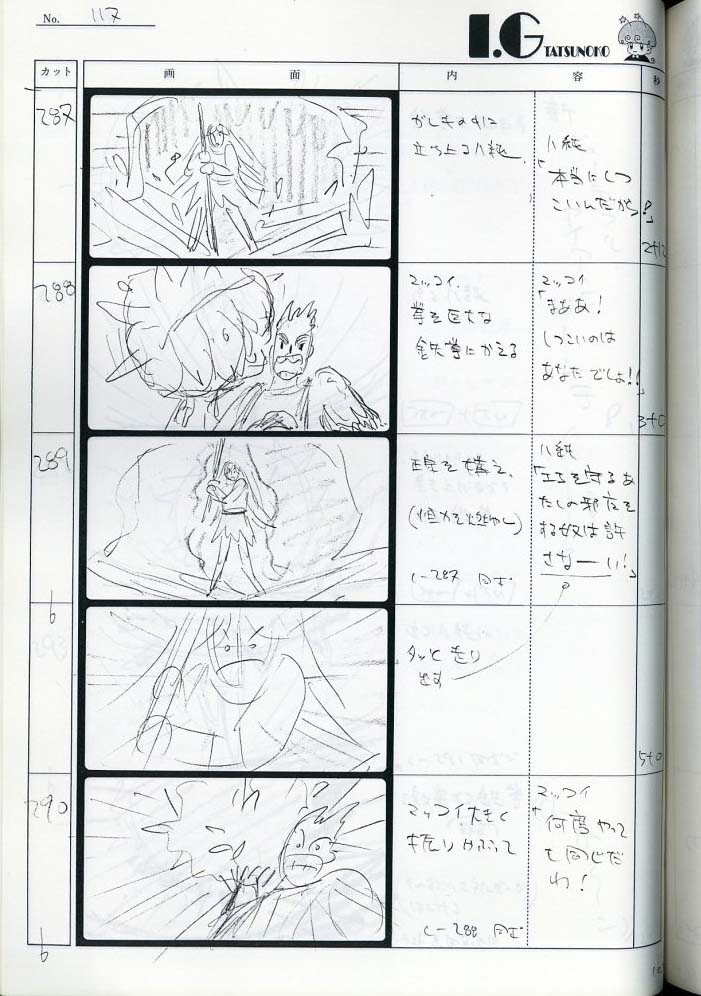 No. 117
I.G TATSUNOKO
カット 画面 内容 秒
287
がしきの中に
立ち上る八紘
八紘
「本当にしつ
こいんだから!」
2+12
288
マッコイ、
拳を巨大な
鉄拳にかえる
マッコイ
「まああ!
しつこいのは
あなたでしょ!!」
3+0
289
正宗を構え、
C-287 同ポ
八紘
する奴は許
さなーい!」
6
ダッと走り
出す
5+0
290
マッコイ大きく
振りかぶって
C-288 同ポ
マッコイ
「何度やって
も同じだ
わ!
6